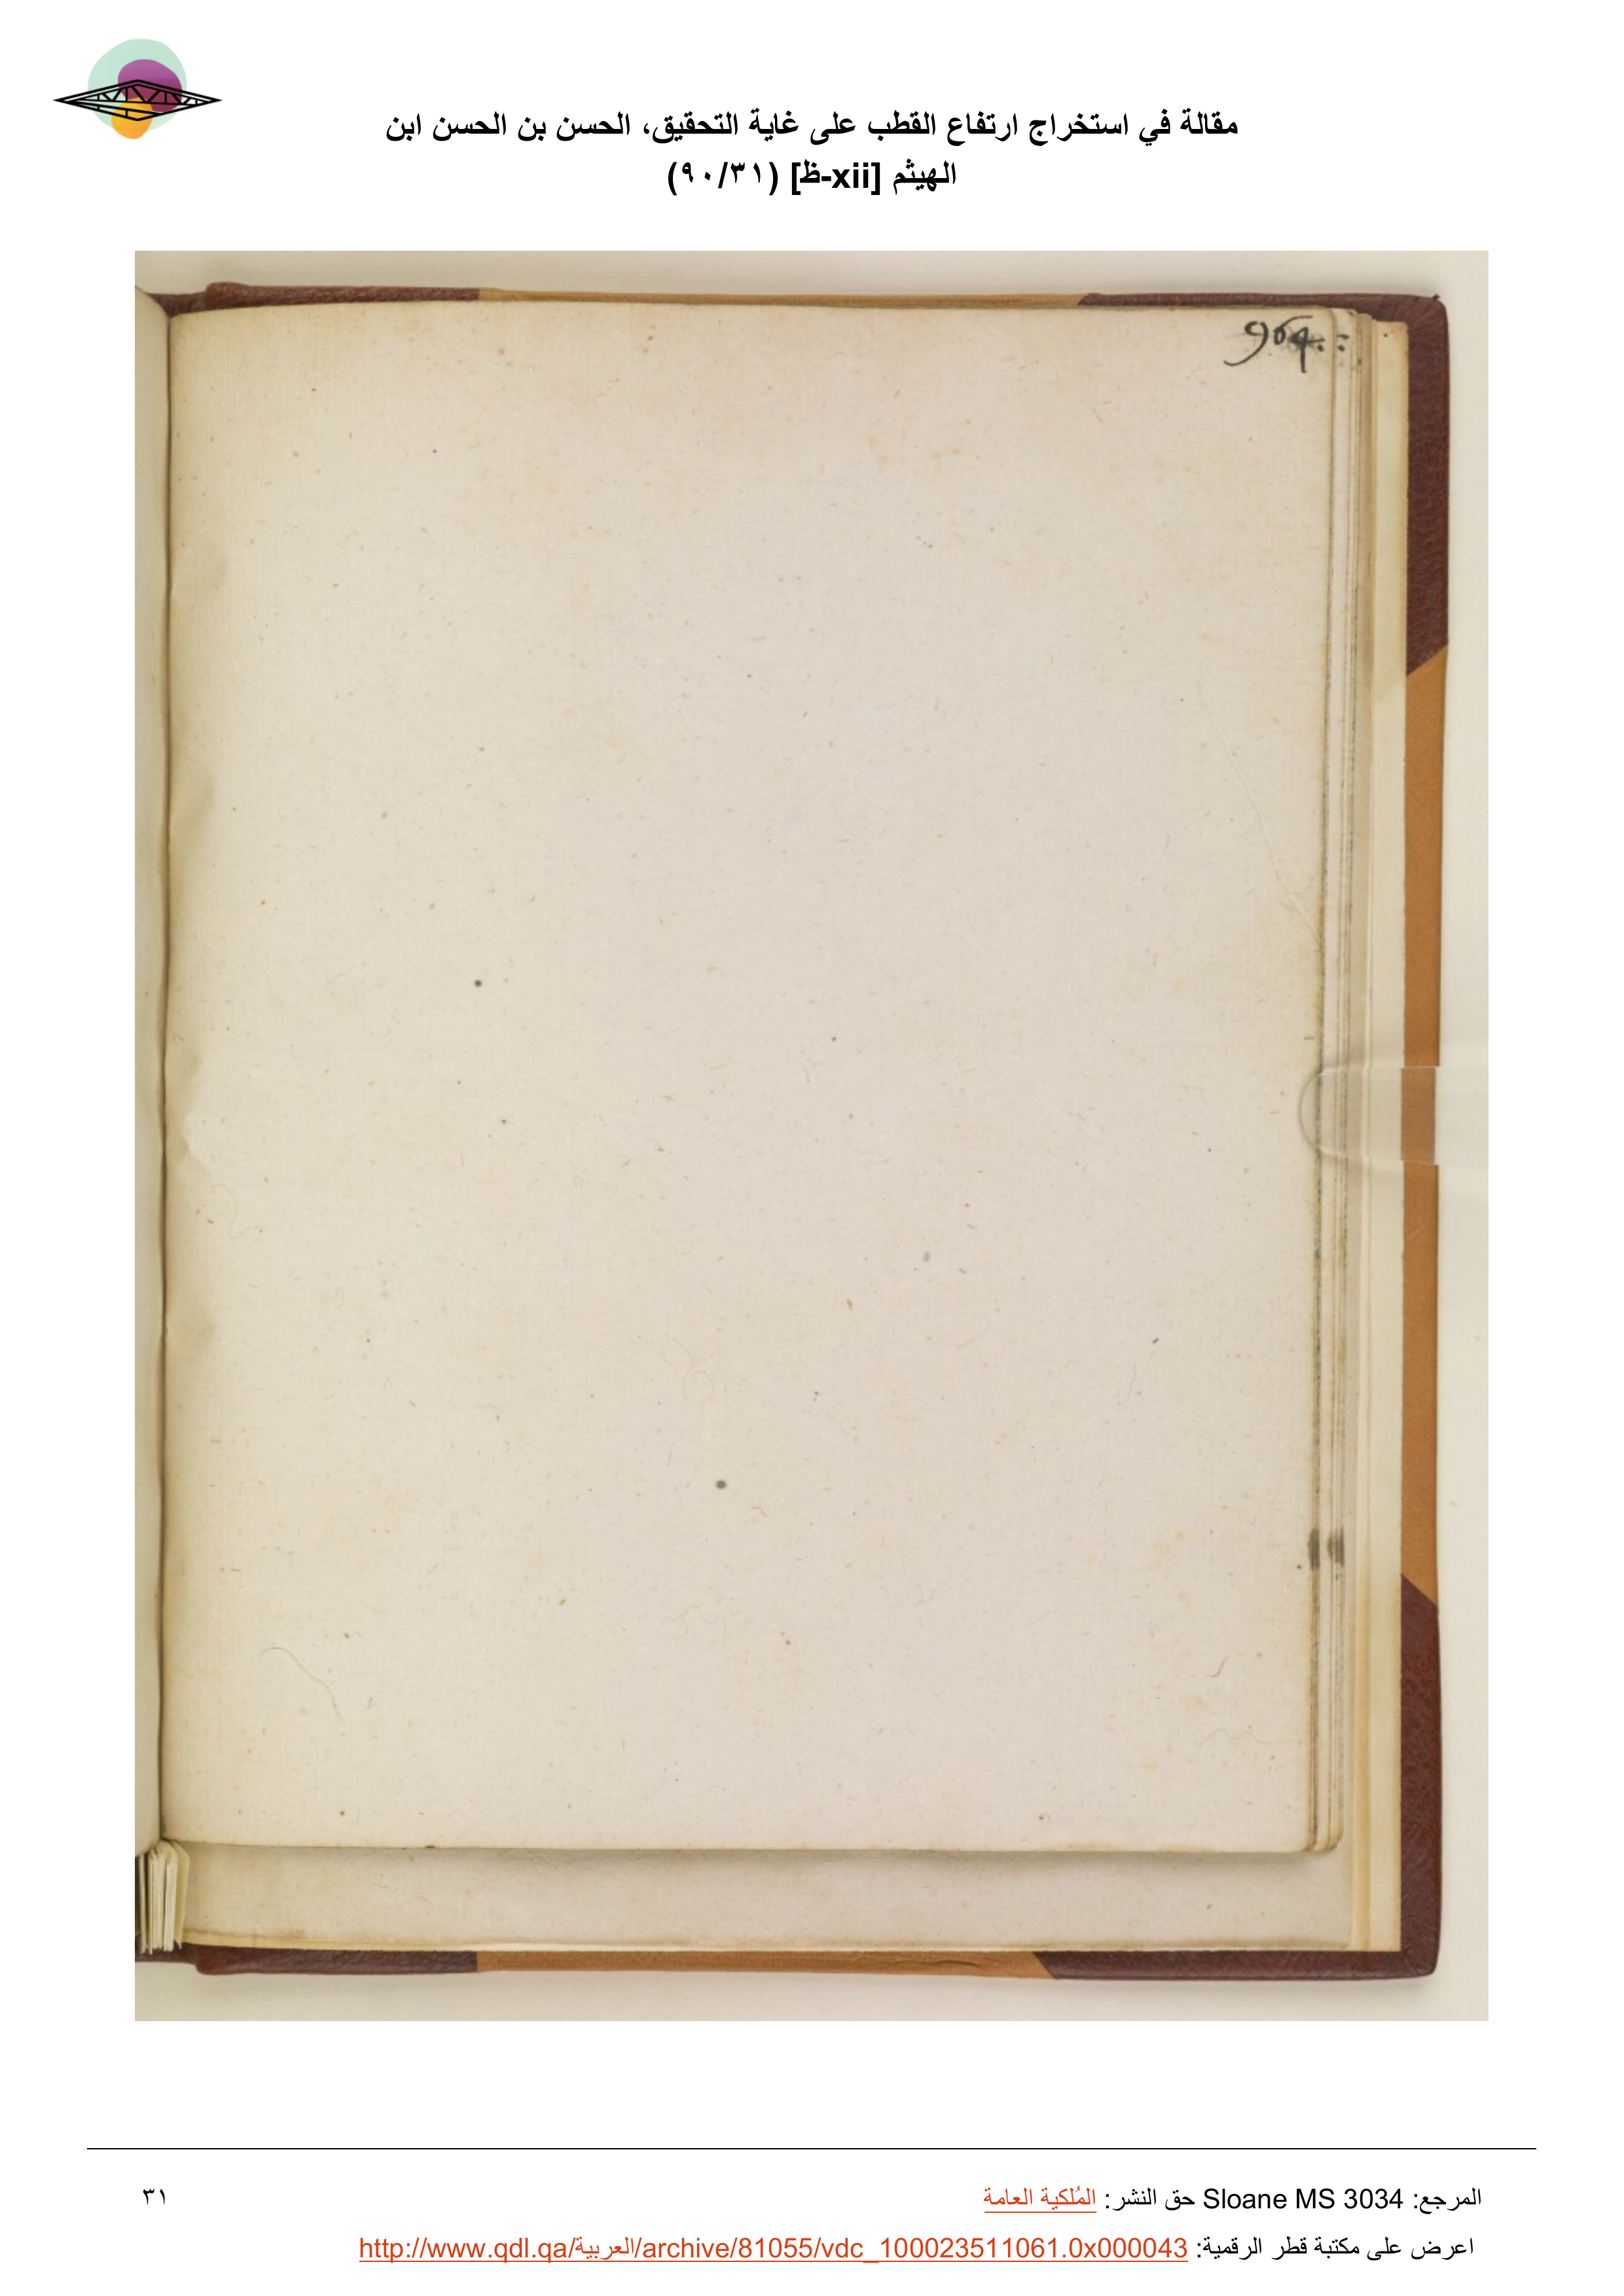 مقالة في استخراج ارتفاع القطب على غاية التحقيق، الحسن بن الحسن ابن
الهيثم [xii-ظ] (٩٠/٣١)
964.:
المرجع: Sloane MS 3034 حق النشر: المُلكية العامة
٣١
اعرض على مكتبة قطر الرقمية: http://www.qdl.qa/العربية/archive/81055/vdc_100023511061.0x000043